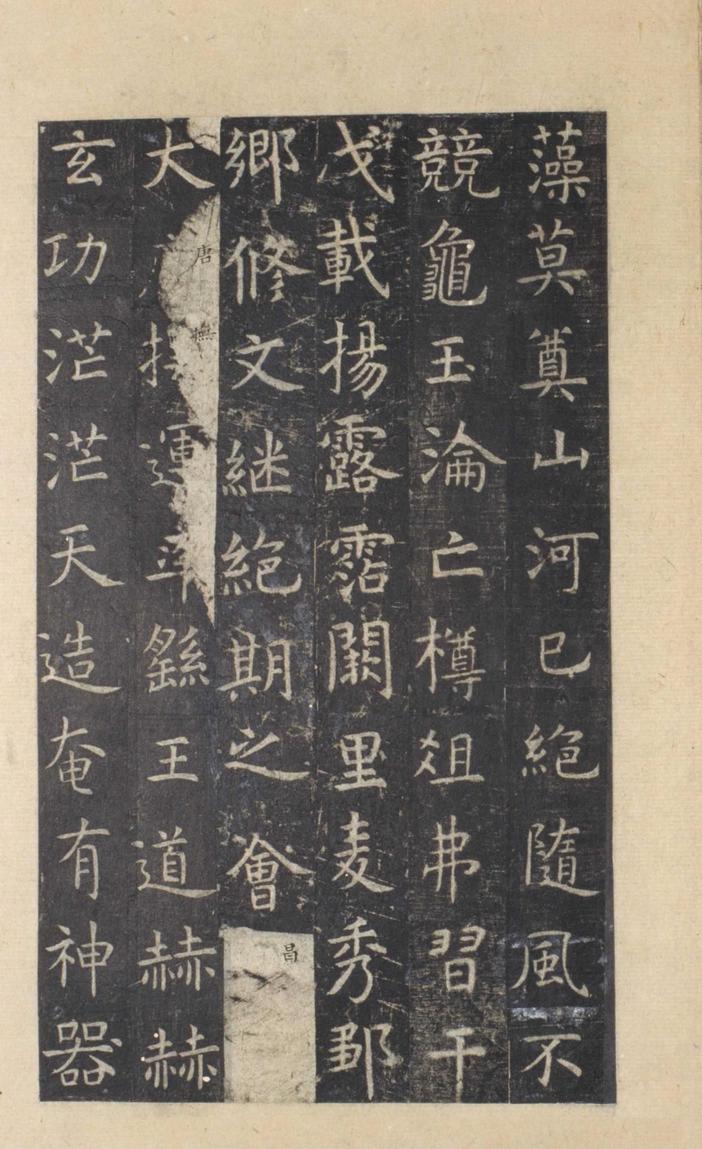 藻莫奠山河已絕隨風不
競龜玉淪亡樽俎弗習干
戈載揚露霑闕里麦秀鄒
鄉脩文継絕期之會昌
大唐撫運率繇王道赫赫
玄功茫茫天造奄有神器